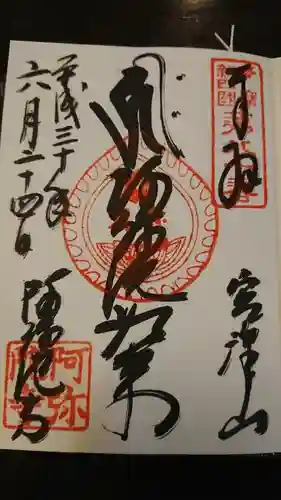 奉拝
宮津山
阿弥陀如来
平成三十年
六月二十四日
阿弥陀寺
阿弥
陀寺